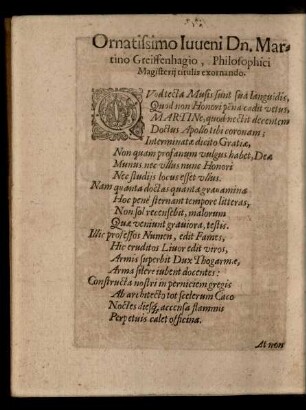 Ornatissimo Iuveni Dn. Mar-
tino Greiffenhagio, Philosophici
Magisterij titulis exornando.
QVod tecta Musis sunt sua languidis,
Quod non Honori cadit vetus,
MARTINe, quod nectit decentem
Doctus Apollo tibi coronam;
Interminatæ dicito Gratiæ,
Non quam profanum vulgus habet, Deæ
Munus nec vllus nunc Honori
Nec studijs locus esset vllus.
Nam quanta doctas quanta gravamina
Hoc penè sternant tempore litteras,
Non sol recensebit, malorum
Quæ veniunt graviora, testis.
Illic professos Numen, edit Fames,
Hic eruditos Livor edit viros,
Armis superbit Dux Thogarmæ,
Arma silere iubent docentes:
Constructa nostri in perniciem gregis
Ab architecto tot scelerum Caco
Noctes diesq́; accensa flammis
Perpetuis calet officina.
At non